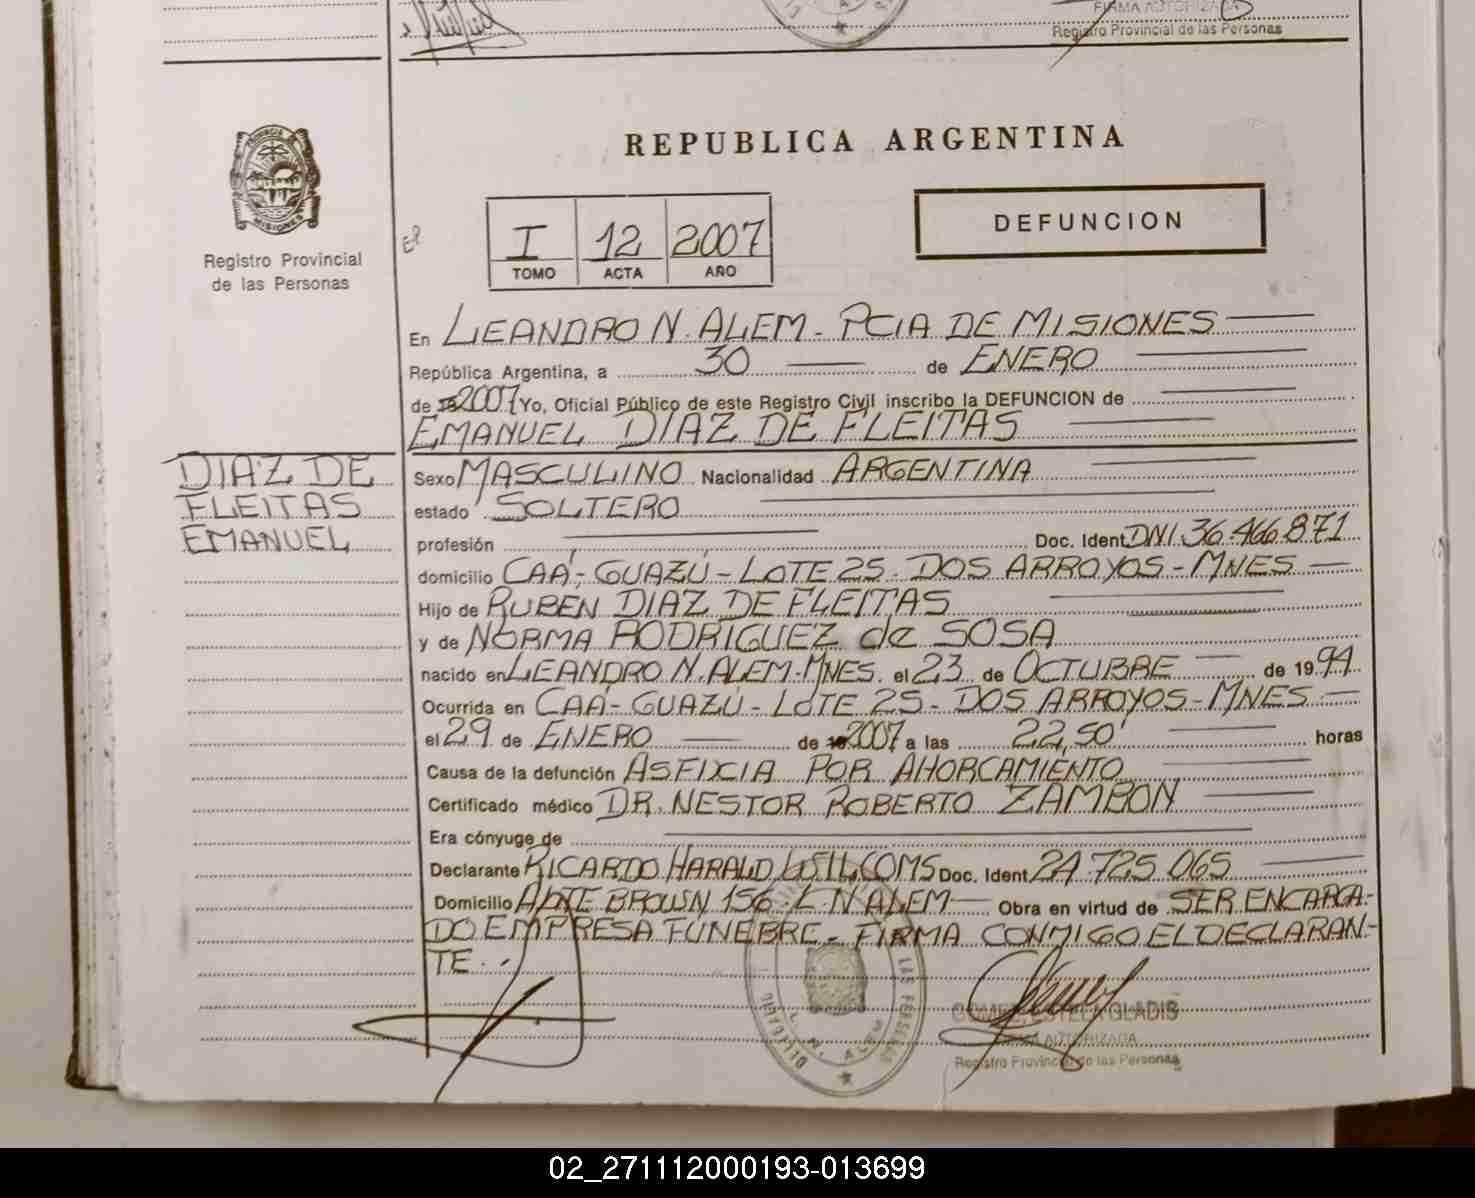 FIRMA AUTORIZADA
Registro Provincial de las Personas
PROVINCIA DE
MISIONES
Registro Provincial
de las Personas
REPUBLICA ARGENTINA
I 12 2007
TOMO ACTA AÑO
DEFUNCION
En LEANDRO N. ALEM - PCIA DE MISIONES
República Argentina, a 30 de ENERO
de 2007 Yo, Oficial Público de este Registro Civil inscribo la DEFUNCION de
EMANUEL DIAZ DE FLEITAS
DIAZ DE
FLEITAS
EMANUEL
Sexo MASCULINO Nacionalidad ARGENTINA
estado SOLTERO
profesión Doc. Ident DNI. 36.466.871
domicilio CAÁ-GUAZÚ - LOTE 25 - DOS ARROYOS - MNES
Hijo de RUBEN DIAZ DE FLEITAS
y de NORMA RODRIGUEZ de SOSA
nacido en LEANDRO N. ALEM - MNES. el 23 de OCTUBRE de 19 91
Ocurrida en CAÁ-GUAZÚ - LOTE 25 - DOS ARROYOS - MNES
el 29 de ENERO de 2007 a las 22,50' horas
Causa de la defunción ASFIXIA POR AHORCAMIENTO
Certificado médico DR. NESTOR ROBERTO ZAMBON
Era cónyuge de
Declarante RICARDO HARALD Doc. Ident 24.725.065
Domicilio ALTE BROWN 156 - L. N. ALEM Obra en virtud de SER ENCARGA-
DO EMPRESA FUNEBRE - FIRMA CONMIGO EL DECLARAN-
TE.
GLADIS
FIRMA AUTORIZADA
Registro Provincial de las Personas
02_271112000193-013699